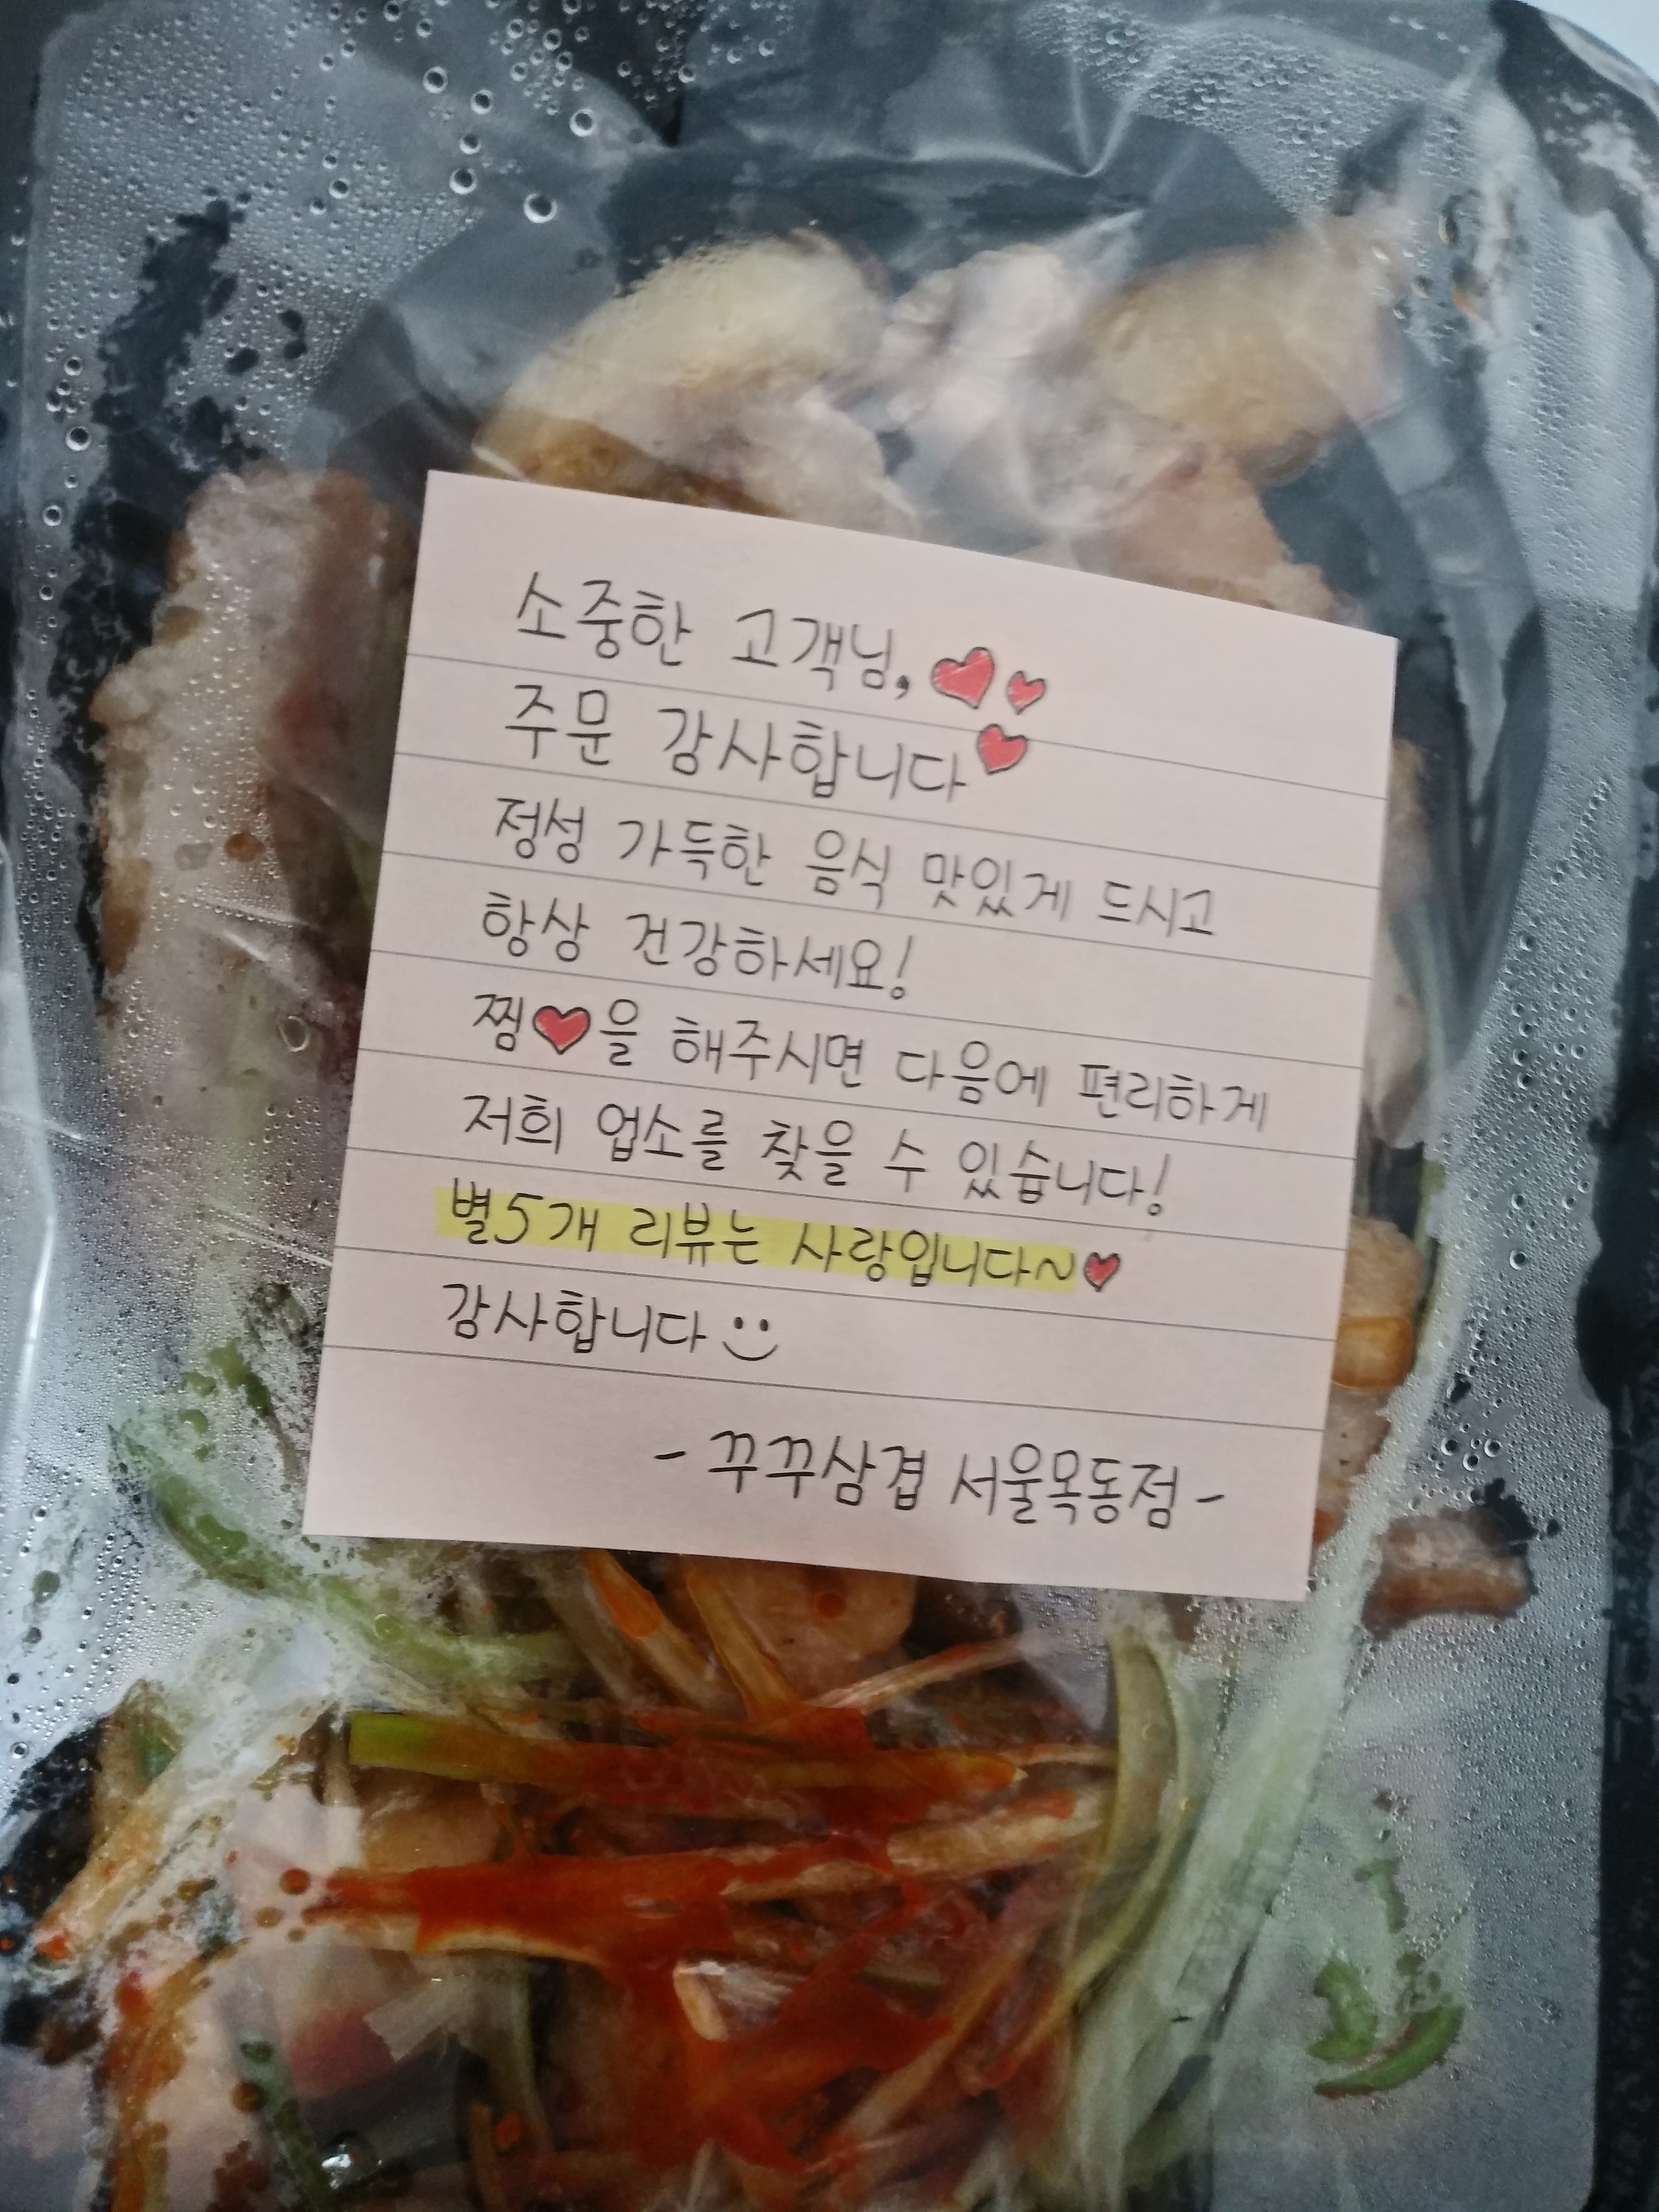 소중한 고객님,♥♥
주문 감사합니다♥
정성 가득한 음식 맛있게 드시고
항상 건강하세요!
찜♥을 해주시면 다음에 편리하게
저희 업소를 찾을 수 있습니다!
별5개 리뷰는 사랑입니다~♥
감사합니다
- 꾸꾸삼겹 서울목동점 -